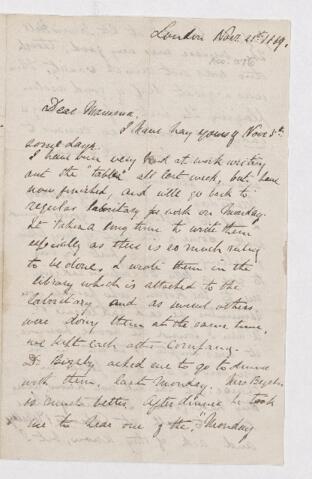 London Nov. 21st 1869.
Dear Mamma,
I have had yours of Nov. 8th
some days.
I have been very hard at work writing
out the "tables" all last week, but have
now finished, and will go back to
regular laboritory work on Monday.
It takes a long time to write them
especially as there is so much ruling
to be done, I wrote them in the
library which is attached to the
laboritory and as several others
were doing them at the same time,
we kept each other company.
Dr. asked me to go to dinner
with them, last Monday. Mrs
is much better. After dinner he took
me to hear one of the, "Monday